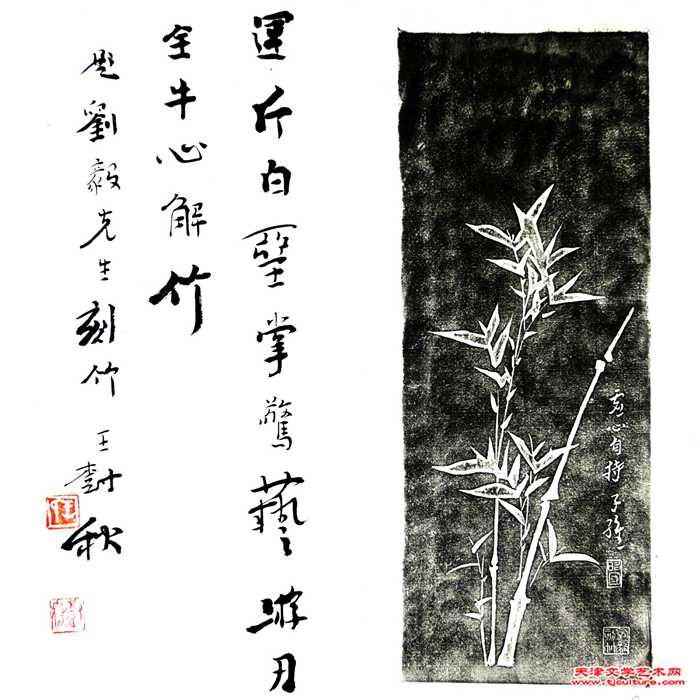 虛心自持
運斤白堊掌驚藝游刃
全牛心解竹
題劉毅先生刻竹 王樹秋
天津文学艺术网
www.tjculture.com